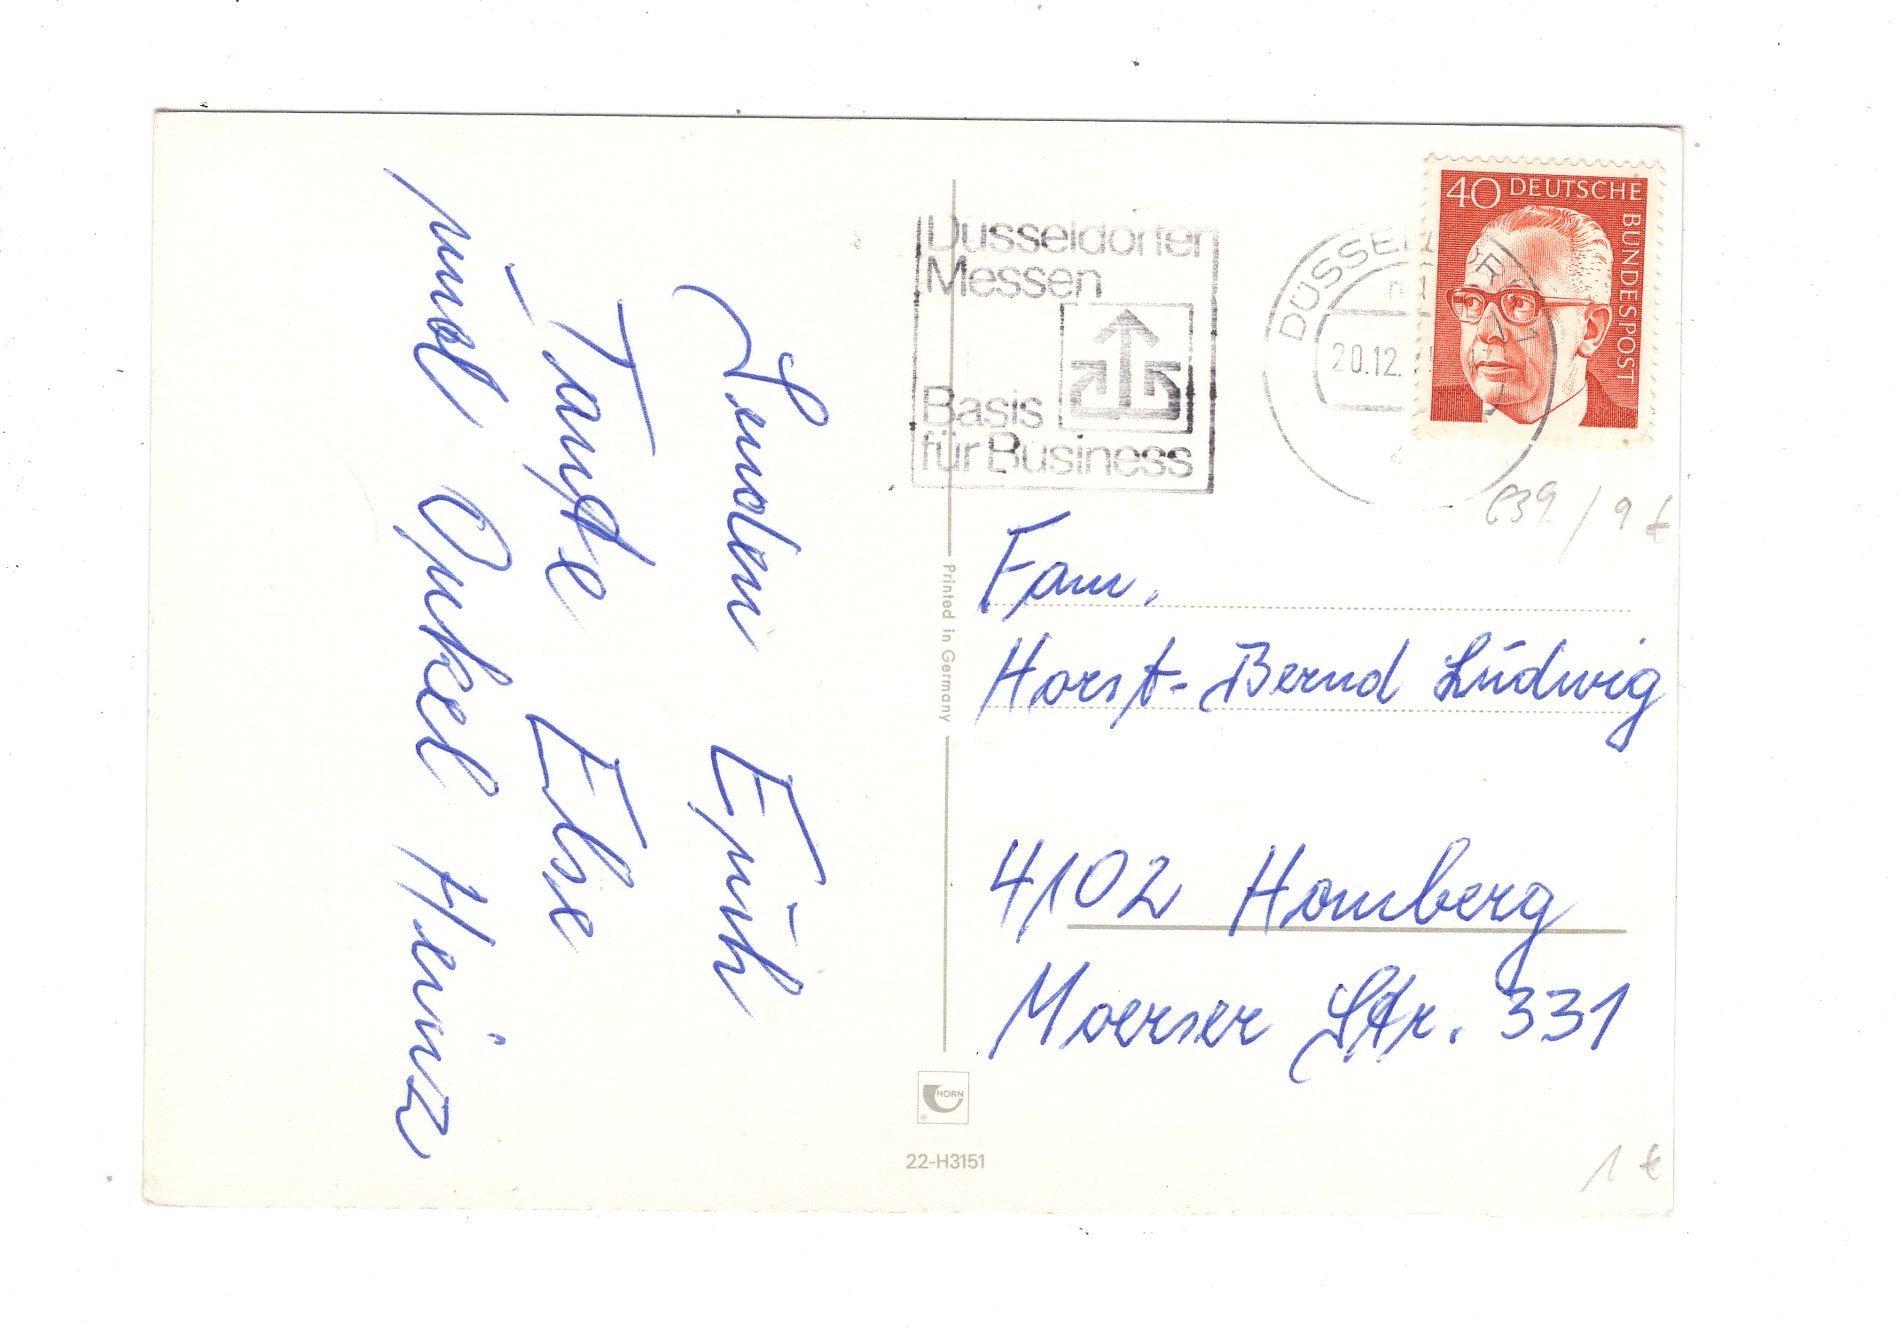 Senden Euch
Tante Else
und Onkel Heinz
Düsseldorfer
Messen
Basis
für Business
DÜSSELDORF
20.12.
40 DEUTSCHE BUNDESPOST
839 / 9 €
Printed in Germany
Fam.
Horst-Bernd Lúdwig
4102 Homberg
Moerser Str. 331
HORN
22-H3151
1 €